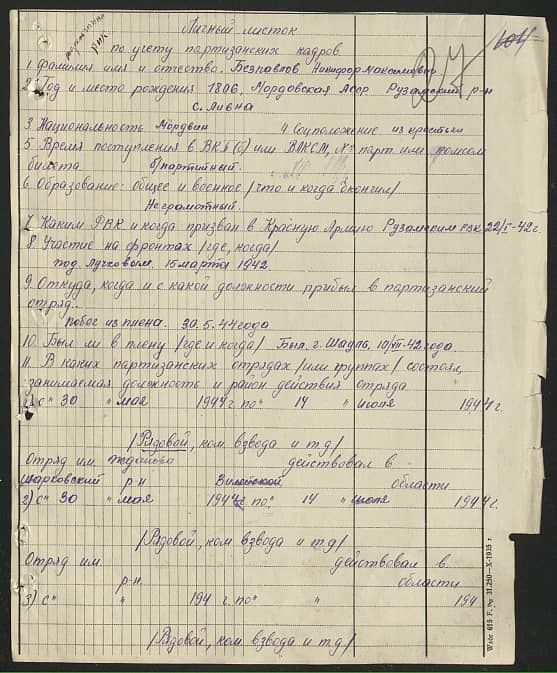 партизанки
РИК
104
Личный листок
по учету партизанских кадров.
1. Фамилия имя и отчество. Безпавлов Никифор Максимович
2. Год и место рождения 1896, Мордовская Асср Рузаевский р-н
с. Ливна
3. Национальность Мордвин 4. Соцположение из крестьян
5. Время поступления в ВКП(б) или ВЛКСМ, №: парт или комсом
билета б/партийный.
6. Образование: общее и военное /что и когда окончил/
Неграмотный.
7. Каким РВК и когда призван в Красную Армию Рузаевским РВК 22/I-42 г.
8. Участие на фронтах /где, когда/
под Лучковым. 15 марта 1942.
9. Откуда, когда и с какой должности прибыл в партизанский
отряд.
Побег из плена. 30.5.44 года
10. Был ли в плену /где и когда/ Был. г. Шауль, 10/VII-42 года.
11. В каких партизанских отрядах /или группах/ состоял,
занимаемая должность и район действия отряда
1) с" 30 " мая 1944 г. по" 14 " июля 1944 г.
/Рядовой, ком. взвода и т.д/
Отряд им. действовал в
Шарковский р-н Вилейской области
2) с" 30 " мая 1944 г. по" 14 " июля 1944 г.
/Рядовой, ком. взвода и т.д/
Отряд им. действовал в
р-н. области
3) с" " 194 г. по" " 194 г.
/Рядовой, ком. взвода и т.д/
Wzór 615 F. Nr. 31.250—X-1935 r.